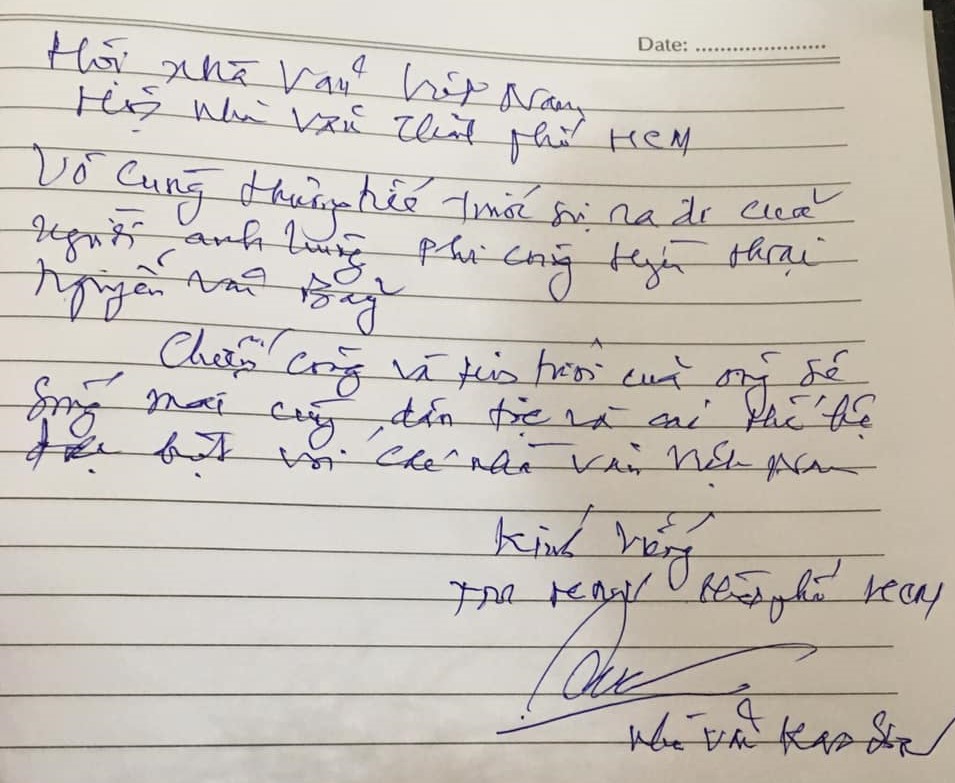 Date: ......................
Hội nhà văn Việt Nam
Hội nhà văn Thành phố HCM
Vô cùng thương tiếc trước sự ra đi của
người anh hùng phi công huyền thoại
Nguyễn Văn Bảy
Chiến công và tên tuổi của ông sẽ
sống mãi cùng dân tộc và các thế hệ
đặc biệt với các nhà văn Việt Nam
Kính viếng
thành phố HCM
Nhà văn